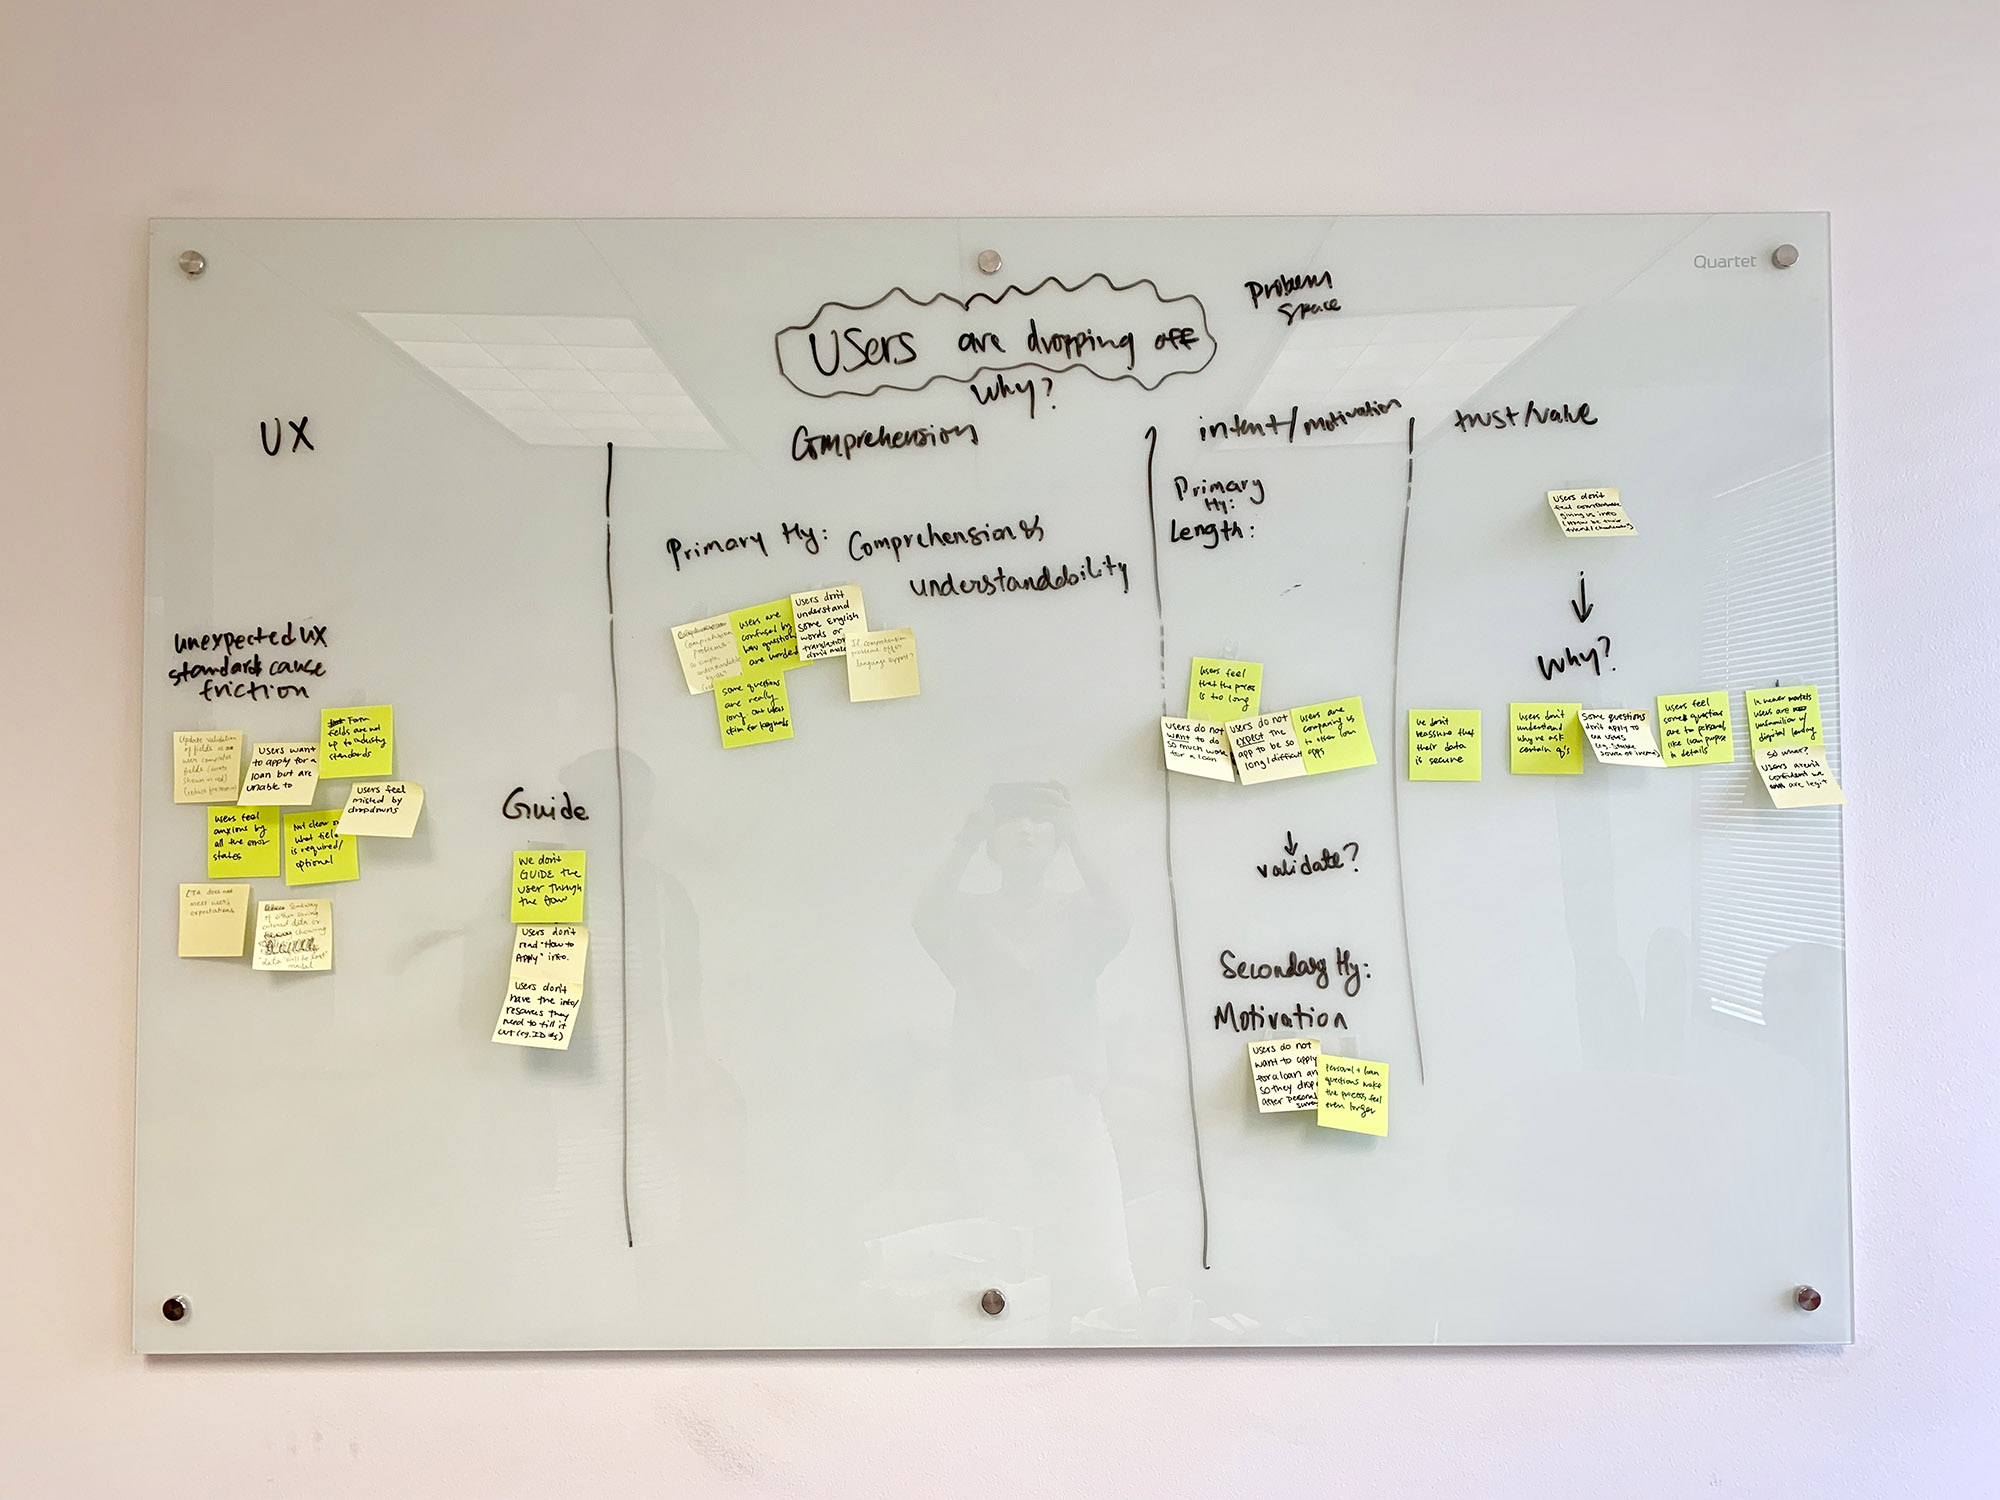 Quartet
Problem
Space
Users are dropping off
Why?
UX
unexpected UX
standards cause
friction
Update validation
of fields as
user completes
fields (errors
shown in red)
Users want
to apply for a
loan but are
unable to
Form
fields are not
up to industry
standards
Users feel
misled by
dropdowns
Users feel
anxious by
all the error
states
Not clear on
what field
is required/
optional
CTA does not
meet user's
expectations
of other saving
entered data or
showing
"data will be lost"
modal
Guide
We don't
GUIDE the
user through
the flow
Users don't
read "How to
Apply" info.
Users don't
have the info/
resources they
need to fill it
out (eg. ID #s)
Comprehension
Primary Hy: Comprehension &
understandability
Comprehension
problems
understandable
Users are
confused by
how questions
are worded
Users don't
understand
some English
words or
translation
some questions
are really
long, our users
skim for keywords
If comprehension
problems offer
language support?
intent/motivation
Primary
Hy:
Length:
Users feel
that the process
is too long
Users do not
want to do
so much work
for a loan
Users do not
expect the
app to be so
long/difficult
Users are
comparing us
to other loan
apps
validate?
Secondary Hy:
Motivation
Users do not
want to apply
for a loan
so they drop
after personal
Personal + loan
questions make
the process feel
even longer
trust/value
Users don't
feel comfortable
giving us info
Why?
We don't
reassure that
their data
is secure
Users don't
understand
why we ask
certain q's
Some questions
don't apply to
our users
(eg. Stable
source of income)
Users feel
some question
are too personal
like loan purpose
details
In newer markets
users are
unfamiliar w/
digital lending
So what?
Users aren't
confident we
are legit